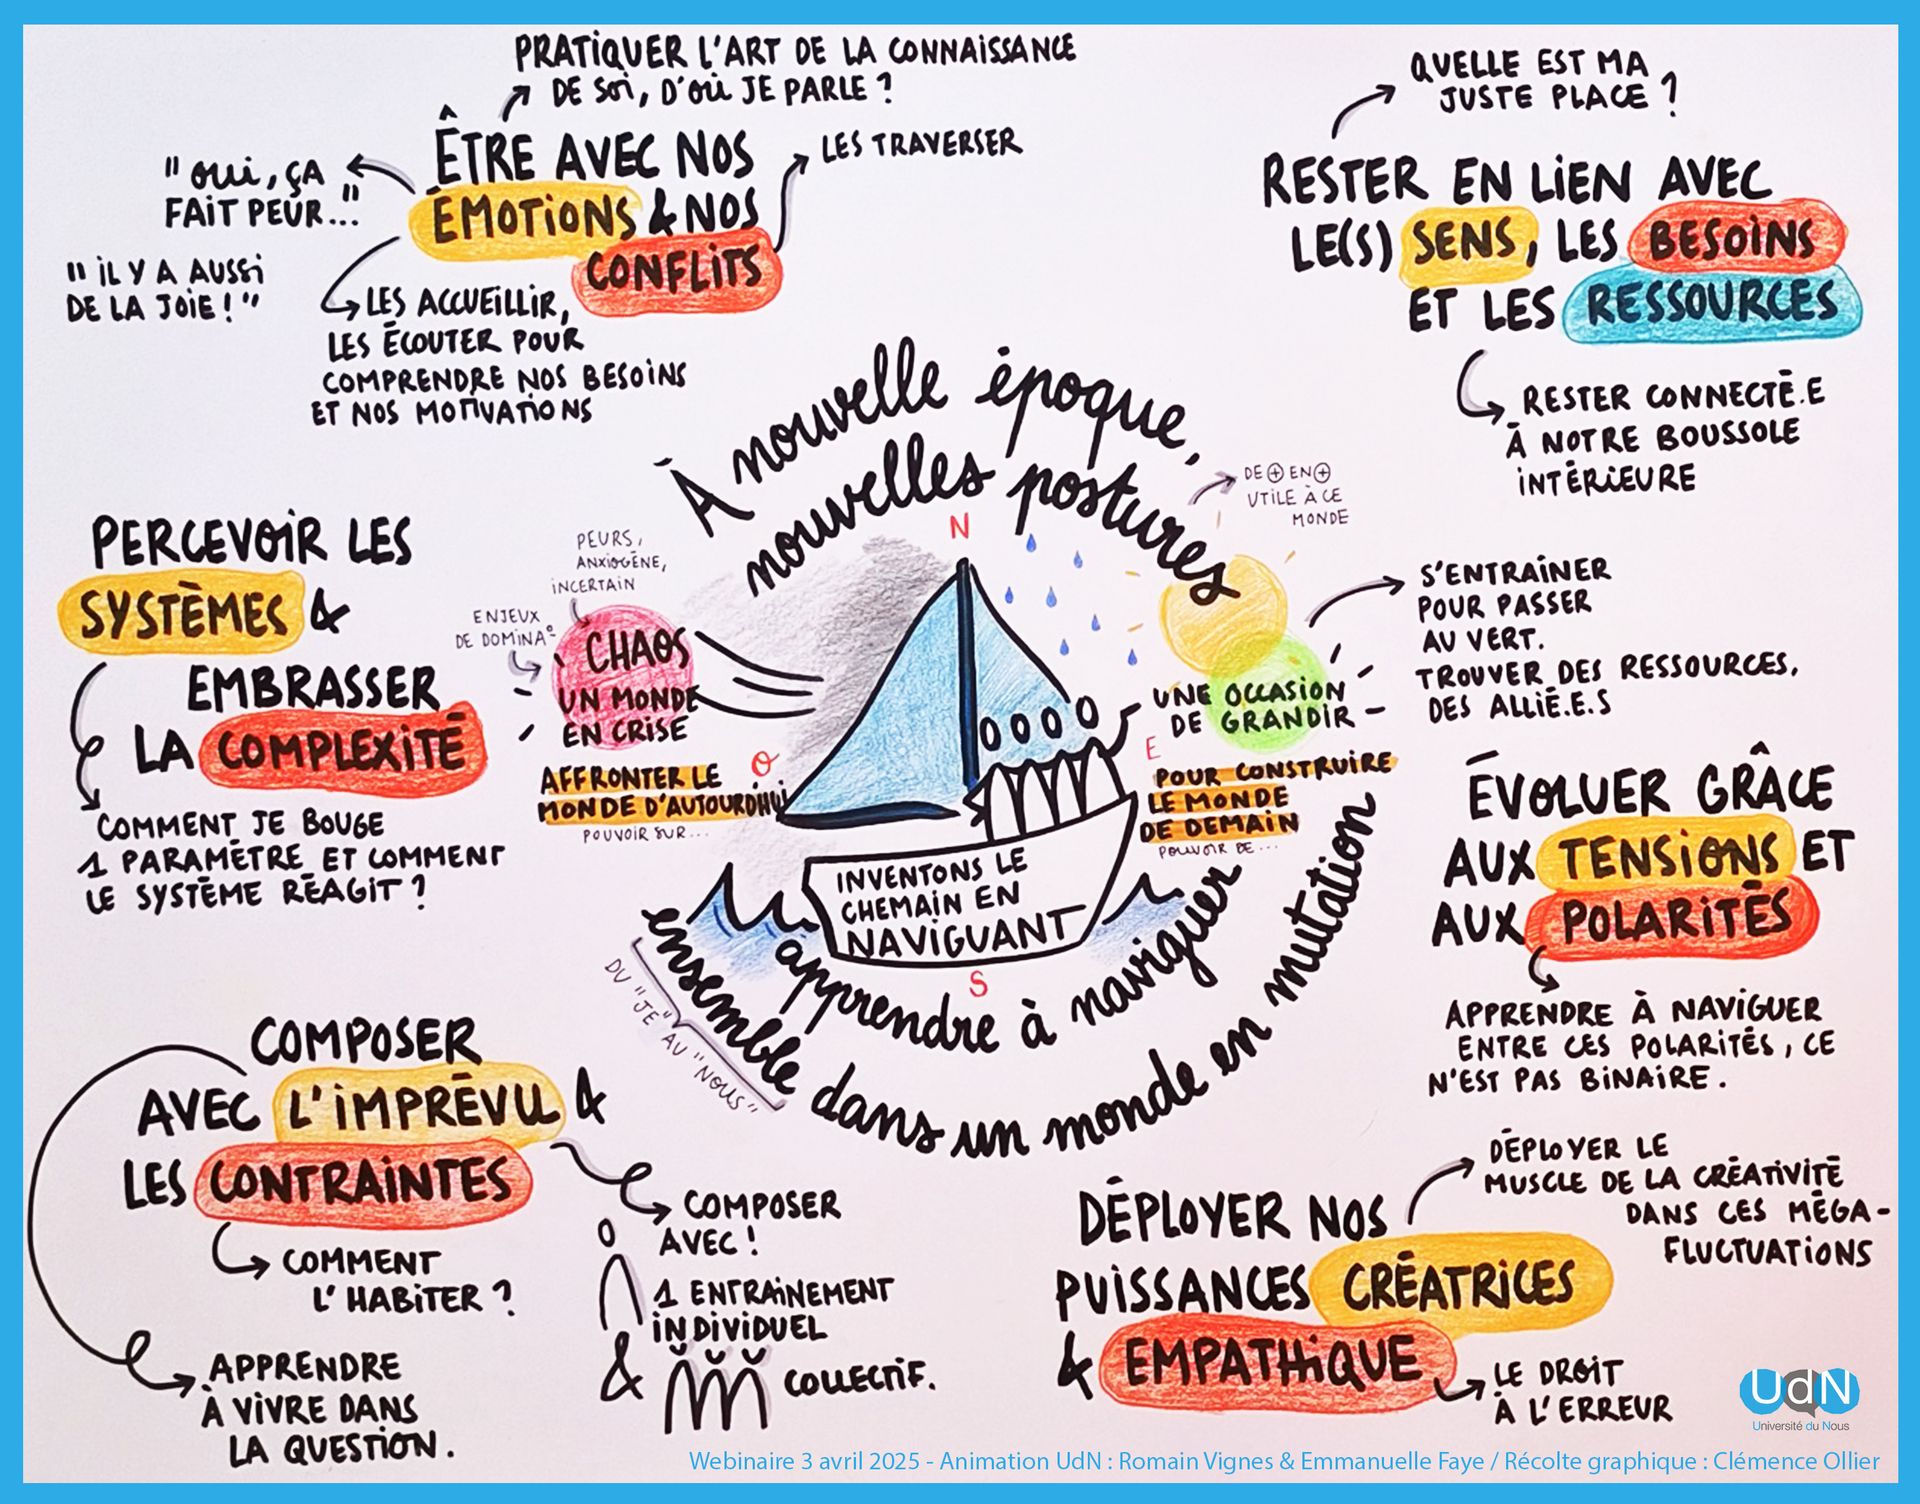 PRATIQUER L'ART DE LA CONNAISSANCE
DE SOI, D'OÙ JE PARLE ?
ÊTRE AVEC NOS
ÉMOTIONS & NOS
CONFLITS
LES TRAVERSER
"OUI, ÇA
FAIT PEUR..."
"IL Y A AUSSI
DE LA JOIE !"
LES ACCUEILLIR,
LES ÉCOUTER POUR
COMPRENDRE NOS BESOINS
ET NOS MOTIVATIONS
QUELLE EST MA
JUSTE PLACE ?
RESTER EN LIEN AVEC
LE(S) SENS, LES BESOINS
ET LES RESSOURCES
RESTER CONNECTÉ.E
À NOTRE BOUSSOLE
INTÉRIEURE
À nouvelle époque,
nouvelles postures
PERCEVOIR LES
SYSTÈMES &
EMBRASSER
LA COMPLEXITÉ
COMMENT JE BOUGE
1 PARAMÈTRE ET COMMENT
LE SYSTÈME RÉAGIT ?
PEURS,
ANXIOGÈNE,
INCERTAIN
ENJEUX
DE DOMINA°
CHAOS
UN MONDE
EN CRISE
AFFRONTER LE
MONDE D'AUJOURD'HUI
POUVOIR SUR...
N
O
E
S
DE + EN +
UTILE À CE
MONDE
UNE OCCASION
DE GRANDIR
POUR CONSTRUIRE
LE MONDE
DE DEMAIN
POUVOIR DE...
S'ENTRAÎNER
POUR PASSER
AU VERT.
TROUVER DES RESSOURCES,
DES ALLIÉ.E.S
INVENTONS LE
CHEMAIN EN
NAVIGUANT
apprendre à naviguer
ensemble dans un monde en mutation
DU "JE" AU "NOUS"
ÉVOLUER GRÂCE
AUX TENSIONS ET
AUX POLARITÉS
APPRENDRE À NAVIGUER
ENTRE CES POLARITÉS, CE
N'EST PAS BINAIRE.
COMPOSER
AVEC L'IMPRÉVU &
LES CONTRAINTES
COMMENT
L'HABITER ?
APPRENDRE
À VIVRE DANS
LA QUESTION.
COMPOSER
AVEC !
1 ENTRAINEMENT
INDIVIDUEL
& COLLECTIF.
DÉPLOYER NOS
PUISSANCES CRÉATRICES
& EMPATHIQUE
DÉPLOYER LE
MUSCLE DE LA CRÉATIVITÉ
DANS CES MÉGA-
FLUCTUATIONS
LE DROIT
À L'ERREUR
UdN
Université du Nous
Webinaire 3 avril 2025 - Animation UdN : Romain Vignes & Emmanuelle Faye / Récolte graphique : Clémence Ollier